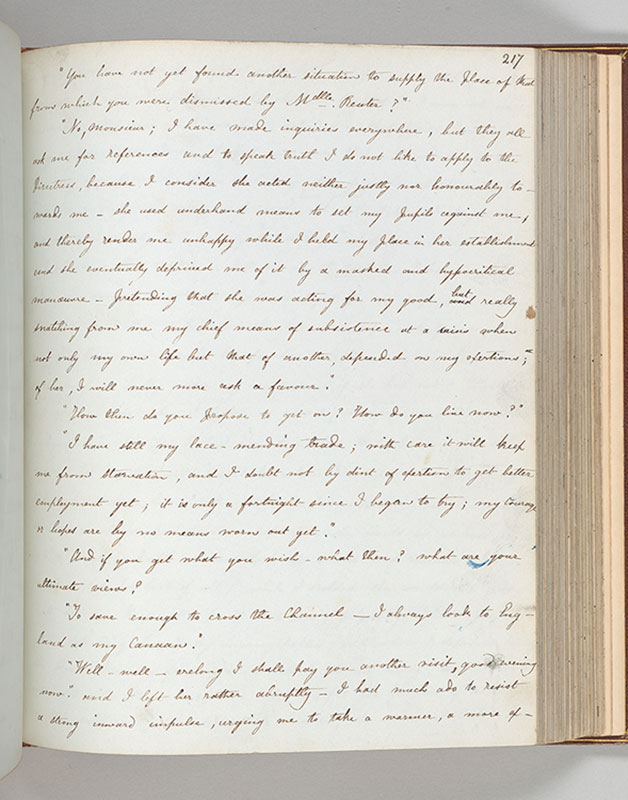 217
"You have not yet found another situation to supply the place of that
from which you were dismissed by Mdlle. Reuter?"
"No, Monsieur; I have made inquiries everywhere, but they all
ask me for references and to speak truth I do not like to apply to the
Directress, because I consider she acted neither justly nor honourably to-
wards me - she used underhand means to set my pupils against me,
and thereby render me unhappy while I held my place in her establishment
and she eventually deprived me of it by a masked and hypocritical
manœuvre - pretending that she was acting for my good, but and really
snatching from me my chief means of subsistence at a crisis when
not only my own life but that of another, depended on my exertions;"
of her, I will never more ask a favour."
"How then do you propose to get on? How do you live now?"
"I have still my lace-mending trade; with care it will keep
me from starvation, and I doubt not by dint of exertion to get better
employment yet; it is only a fortnight since I began to try; my courage
or hopes are by no means worn out yet."
"And if you get what you wish - what then? what are your
ultimate views?
"To save enough to cross the Channel — I always look to Eng-
land as my Canaan."
"Well - well - erelong I shall pay you another visit, good evening
now." and I left her rather abruptly - I had much ado to resist
a strong inward impulse, urging me to take a warmer, a more ex-